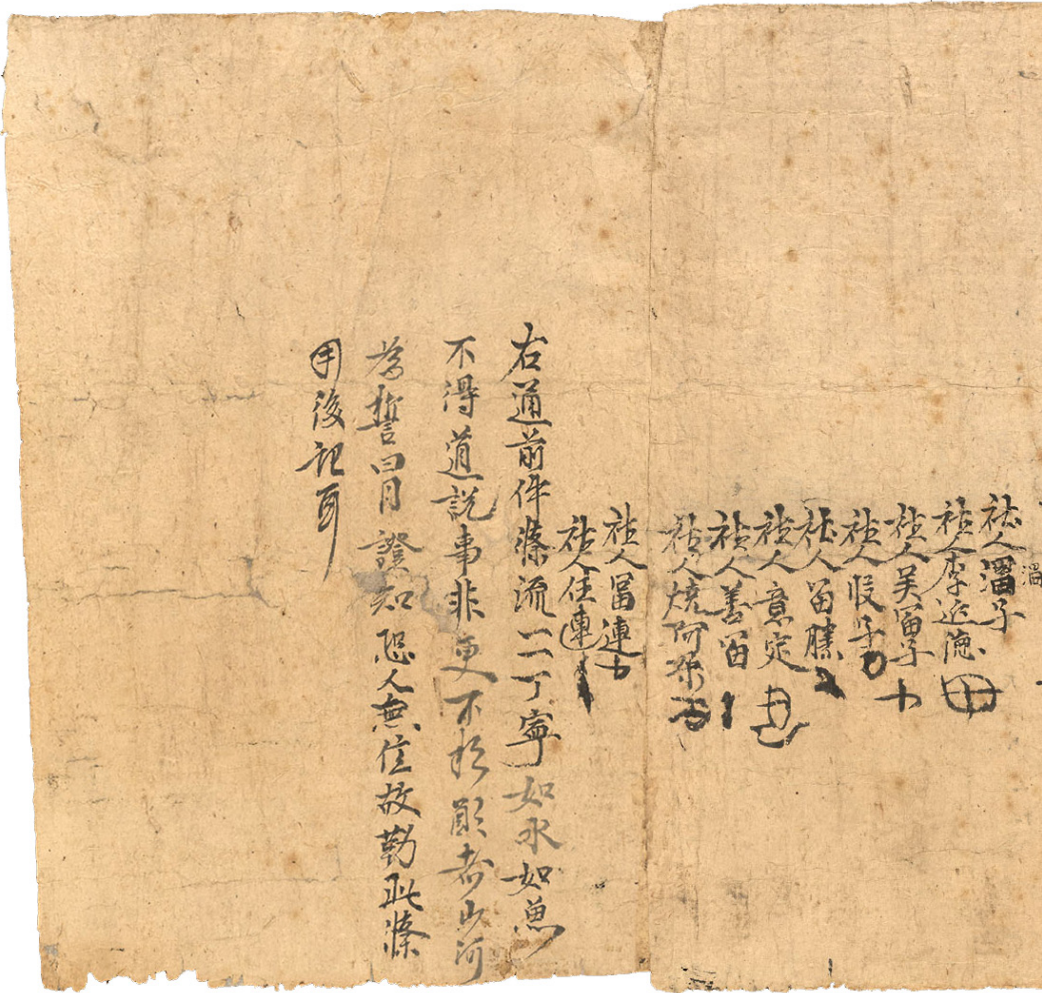 溜
社人溜子
社人李延德
社人吴富子
社人段子
社人富勝
社人意定
社人善富
社人燒阿朶
社人富連
社人住連
右通前件條流一一丁寧如水如魚
不得道說事非更不於願者山河
為誓日月證知恐人無信故勒此條
用後記耳